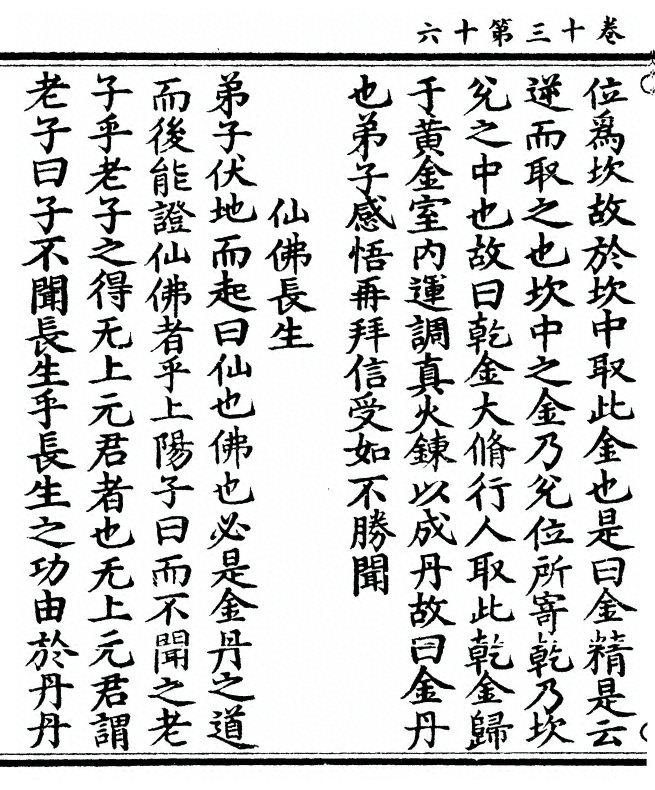 卷十三第十六
位爲坎故於坎中取此金也是曰金精是云
逆而取之也坎中之金乃兊位所寄乾乃坎
兊之中也故曰乾金大脩行人取此乾金歸
于黄金室内運調真火鍊以成丹故曰金丹
也弟子感悟再拜信受如不勝聞
仙佛長生
弟子伏地而起曰仙也佛也必是金丹之道
而後能證仙佛者乎上陽子曰而不聞之老
子乎老子之得无上元君者也无上元君謂
老子曰子不聞長生乎長生之功由於丹丹